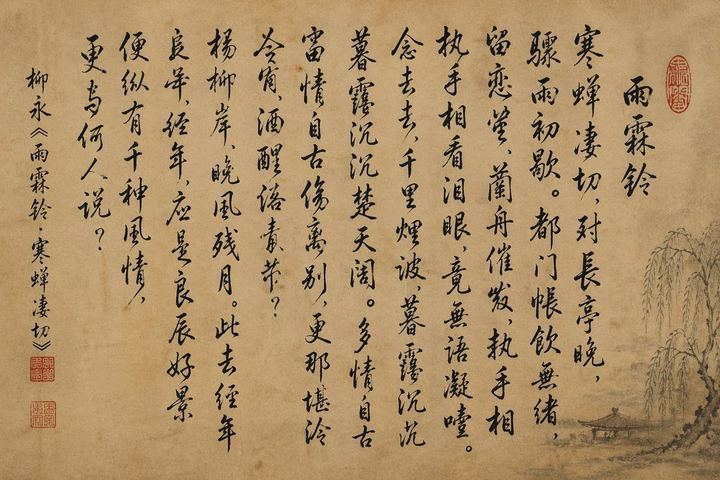 雨霖铃
寒蝉凄切,对長亭晚,
骤雨初歇。都门帳飲無緒,
留恋蘭舟催发,执手相
执手相看泪眼,竟無语凝噎。
念去去,千里烟波,暮靄沉沉
暮靄沉沉楚天阔。多情自古
情自古伤离别,更那堪冷
酒醒
杨柳岸,晚風残月。此去经年
年,经年,应是良辰好景
便纵有千种風情,
更与何人说?
柳永《雨霖铃·寒蝉凄切》